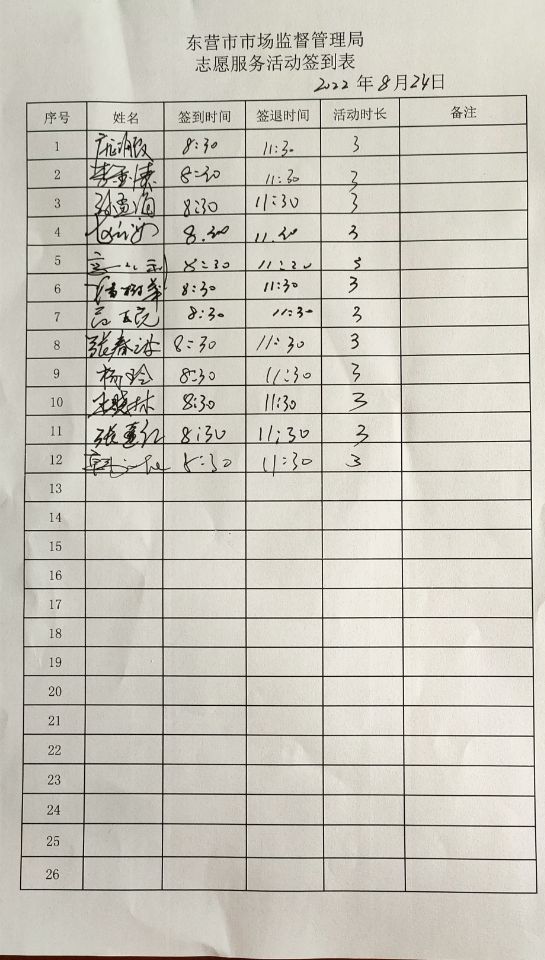 东营市市场监督管理局
志愿服务活动签到表
2022 年 8 月 24 日
序号 姓名 签到时间 签退时间 活动时长 备注
1 8:30 11:30 3
2 8:30 11:30 3
3 8:30 11:30 3
4 8:30 11:30 3
5 8:30 11:30 3
6 8:30 11:30 3
7 8:30 11:30 3
8 张春 8:30 11:30 3
9 杨玲 8:30 11:30 3
10 林 8:30 11:30 3
11 张 红 8:30 11:30 3
12 8:30 11:30 3
13
14
15
16
17
18
19
20
21
22
23
24
25
26